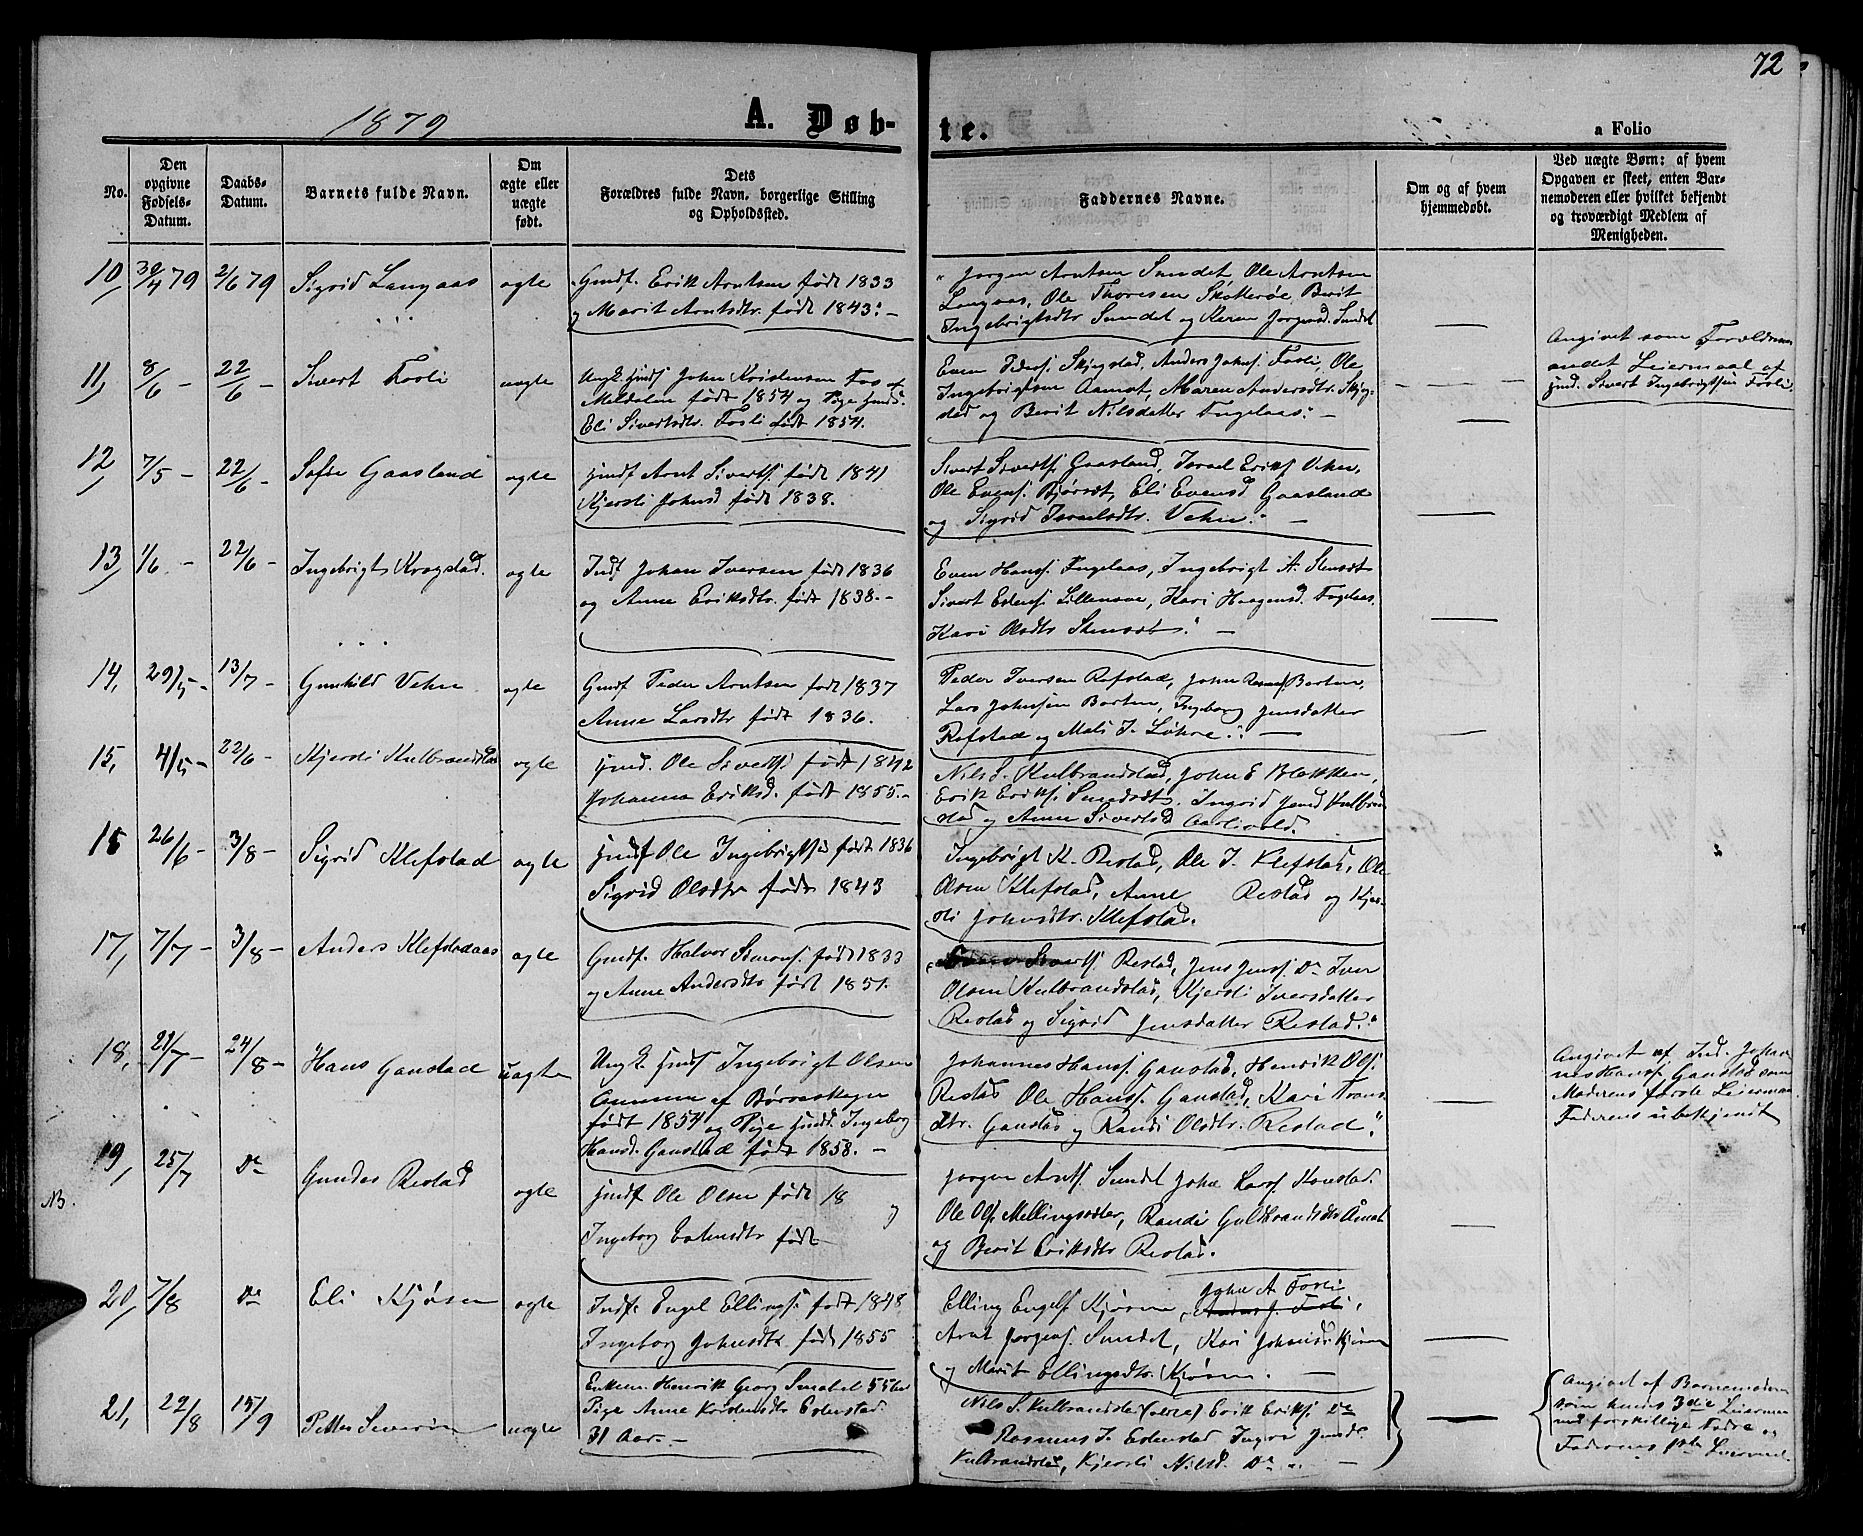 72
1879
A. Døb-
te.
a Folio
No.
Den
opgivne
Fødsels-
Datum.
Daabs-
Datum.
Barnets fulde Navn.
Om
ægte eller
uægte
født.
Dets
Forældres fulde Navn, borgerlige Stilling
og Opholdssted.
Faddernes Navne.
Om og af hvem
hjemmedøbt.
Ved uægte Børn: af hvem
Opgaven er skeet, enten Bar-
nemoderen eller hvilket bekjendt
og troværdigt Medlem af
Menigheden.
10, 30/4 79 2/6 79 Sigrid Langaas ægte
Gmdf. Erik Arntsen født 1833
og Marit Arntsdtr. født 1843. –
Jørgen Arntsen Sundet Ole Arntsen
Langaas, Ole Thoresen Berit
Ingebrigtsdtr Sundet og Karen Jørgensd. Sundet
11, 8/6 – 22/6 – Sivert Fosli uægte
Ungk. John Kristensen Fos af
Meldalen født 1854 og Pige
Eli Sivertsdtr. Fosli født 1854.
Even Peders. Skjegstad, Anders Johns. Fosli, Ole
Ingebrigtsen Aamot, Maren Andersdtr. Skjeg-
stad og Berit Nilsdatter
Angivet som Forældrenes
andet Leiermaal af
Sivert Ingebrigtsen Fosli
12, 7/5 – 22/6 – Gaasland ægte
Arnt Siverts. født 1841
Kjersti Johnsd født 1838.
Sivert Siverts. Gaasland, Israel Eriks. Vehn,
Ole Evens. Eli Evensd Gaasland
og Sigrid Israelsdtr. Vehn. –
13, 1/6 – 22/6 – Ingebrigt Krogstad. ægte
Johan Iversen født 1836
og Anne Eriksdtr. født 1838. –
Even Hans. Ingebrigt A.
Sivert Estens. Kari Haagensd.
Kari Olsdtr
14, 29/5 – 13/7 – Gunhild Vehn ægte
Gmdf Peder Arntsen født 1837
Anne Larsdtr født 1836.
Peder Iversen Refstad, John Borten,
Lars Johnsen Borten, Ingeborg Jensdatter
Refstad og Mali J. Løhre. –
15, 4/5 – 22/6 – Kjersti Kulbrandstad ægte
Ole Siverts. født 1842
Johanna Eriksd. født 1855. –
Nils S. Kulbrandstad, John E
Erik Eriks. Ingrid Jensd Kulbrand-
stad og Anne Sivertsd
16 26/6 – 3/8 – Sigrid Klefstad ægte
Ole Ingebrigtsen født 1836
Sigrid Olsdtr født 1843
Ingebrigt K. Restad, Ole I. Klefstad, Ole
Olsen Klefstad, Anne Restad og Kjer-
sti Johnsdtr. Klefstad.
17, 7/7 – 3/8 – Anders Klefstadaas ægte
Gmdf. Halvor Simons. født 1833
og Anne Andersdtr født 1851.
Siverts. Restad, Jens Jenss. Do Iver
Olsen Kulbrandstad, Kjersti Iversdatter
Restad og Sigrid Jensdatter Restad.
18, 21/7 – 24/8 – Hans Gaustad uægte
Ungk. Ingebrigt Olsen
af Børseskogn
født 1854 og Pige Ingeborg
Hansd. Gaustad født 1858. –
Johannes Hans. Gaustad, Henrik Ols.
Restad Ole Hans. Gaustad, Kari
dtr. Gaustad og Randi Olsdtr. Restad.
Angivet af Ind. Johan-
nes Hans. Gaustad som
Moderens første Leiermaal
Faderens ubekjendt
NB.
19, 25/7 Do Restad ægte
Ole Olsen født 18
Ingeborg Estensdtr født
Jørgen Arnts. Sundet John Lars.
Ole Ols. Randi Guldbrandsdtr Aamot
og Berit Eriksdtr Restad.
20, 7/8 Do Eli Kjøsen ægte
Engel Ellings. født 1848
Ingeborg Johnsdtr født 1855
Elling Engels Kjøsen, John A Fosli
Anders J. Fosli,
Arnt Jørgens. Sundet, Kari Johnsdr. Kjøsen
og Marit Ellingsdtr. Kjøsen. –
21, 22/8 15/9 Petter Severin uægte
Enkem. Henrik Georg 55 Aar
Pige Anne Estenstad
31 Aar. –
Nils S. Kulbrandstad Erik Eriks. Do
Rasmus J. Estenstad Ingrid Jensd.
Kulbrandstad, Kjersti Nilsd. Do –
Angivet af Barnemoderen
som hendes 3die Leiermaal
med forskjellige Fædre og
Faderens 1ste Leiermaal